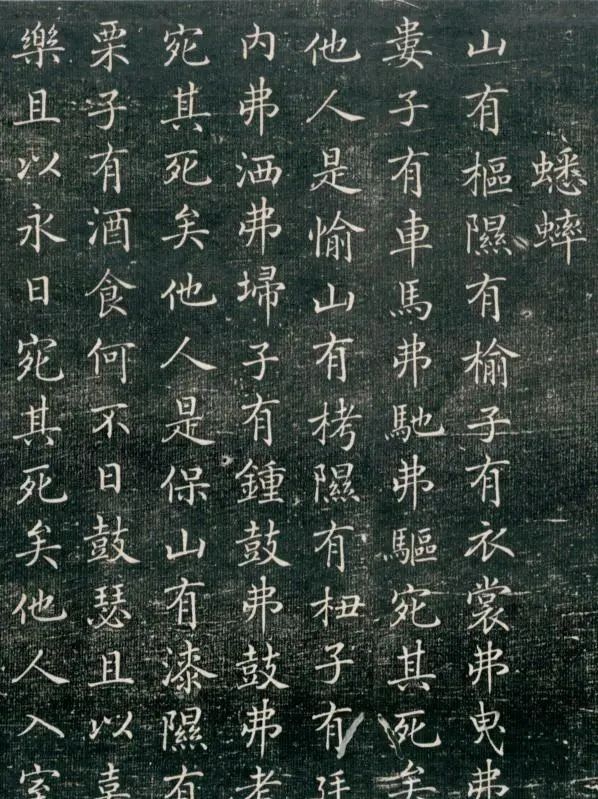 蟋蟀
山有樞隰有榆子有衣裳弗曳弗
婁子有車馬弗馳弗驅宛其死矣
他人是愉山有栲隰有杻子有廷
内弗洒弗埽子有鍾鼓弗鼓弗考
宛其死矣他人是保山有漆隰有
栗子有酒食何不日鼓瑟且以喜
樂且以永日宛其死矣他人入室